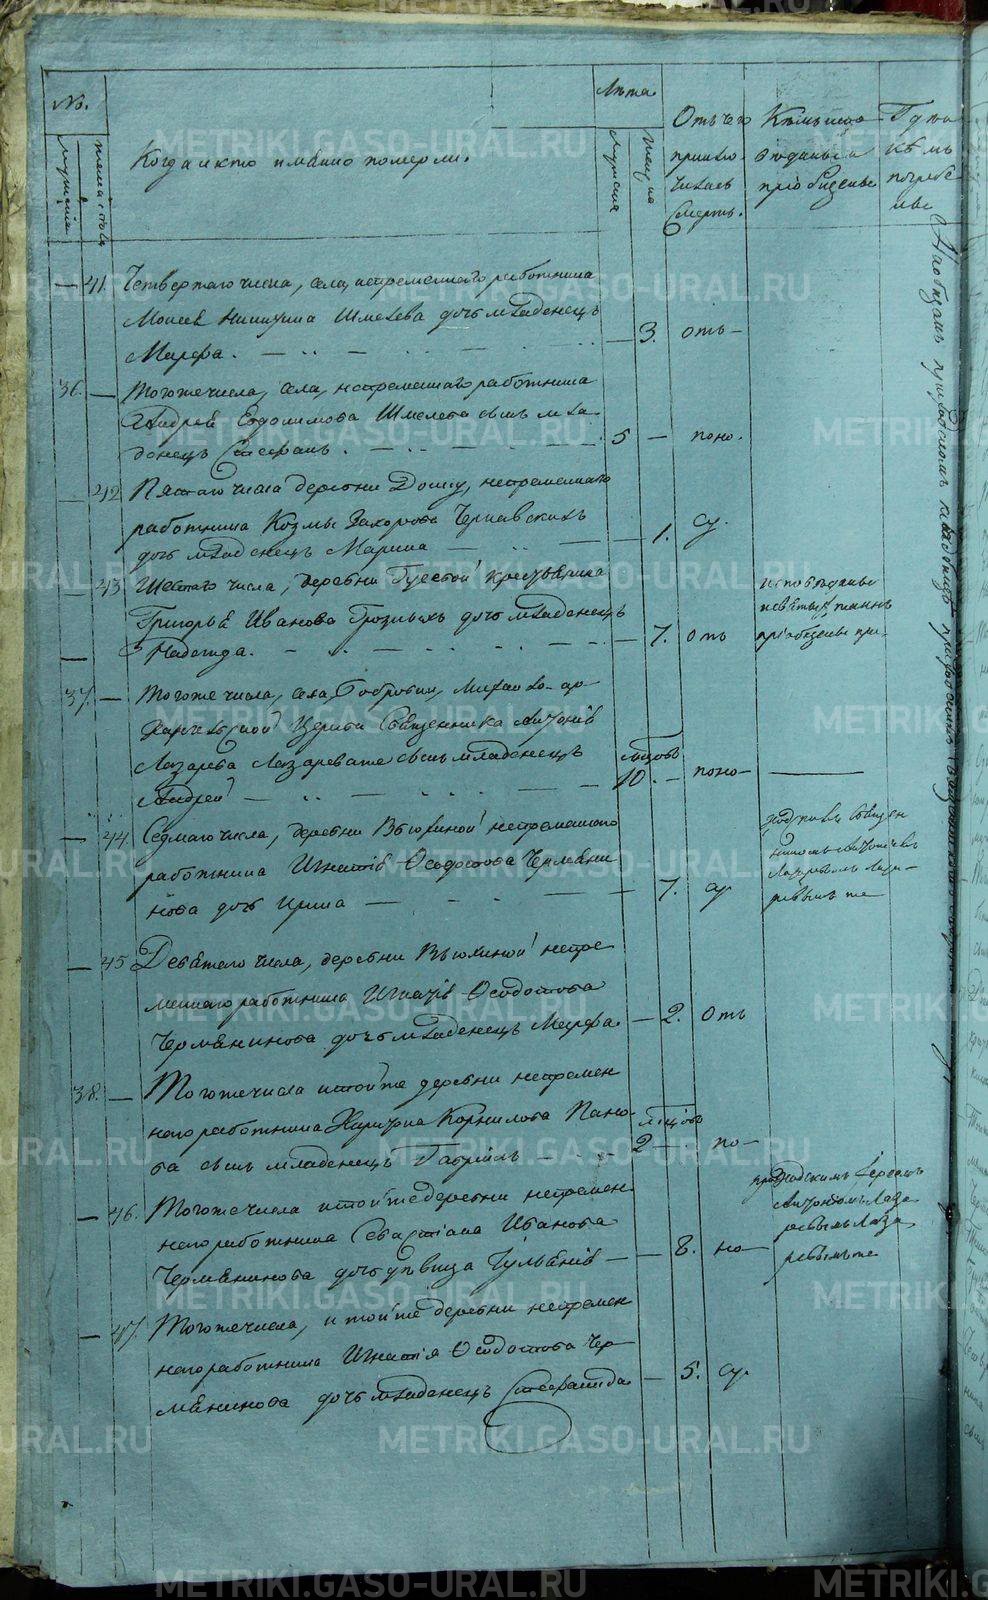 №.
мужска
женска
Когда и кто имянно померли.
Лѣта
мужска
женска
Отъ чего
приклю
чилась
смерть.
Кѣмъ испо
вѣданы и
пріобщены
Гдѣ и
кѣмъ
погребе
ны
— 41. Четвертаго числа, села, непременнаго работника
Моисея Никитина Шмелева дочь младенецъ
Марфа. — 3. отъ —
36. — Того же числа, села, непременнаго работника
Андрея Евдокимова Шмелева сынъ мла
денецъ Стефанъ. 5 — поно.
— 42 Пятаго числа деревни непременнаго
работника Козмы Захарова Чернавскихъ
дочь младенецъ Марина — 1. су.
— 43 Шестаго числа, деревни крестьянина
Григорья Иванова Грозныхъ дочь младенецъ
Надежда. — 7. отъ
исповѣданы
и святыхъ таинъ
пріобщены при-
37. — Того же числа, села Бобровки, Михаило-ар
хангельской церкви Священника Антонія
Лазарева Лазарева же сынъ младенецъ
Андрей — мѣсяцовъ
10. — поно —
— 44. Седмаго числа, деревни Вьюхиной непременнаго
работника Игнатія Феодотова Чермяни
нова дочь Ирина — 7. су
ходскимъ священ
никомъ Антоніемъ
Лазаревымъ Лаза
ревымъ же
— 45 Девятаго числа, деревни Вьюхиной непре
меннаго работника Игнатія Феодотова
Чермянинова дочь младенецъ Марфа — 2. отъ
38. — Того же числа и той же деревни непремен
наго работника Корнилова Пано
ва сынъ младенецъ Гавріилъ — мѣсяцовъ
2 — по —
— 46. Того же числа и той же деревни непремен
наго работника Севастіана Иванова
Чермянинова дочь девица Іуліанія — 8. но —
приходскимъ Іереемъ
Антоніемъ Лаза
ревымъ Лаза
ревымъ же
— 47. Того же числа, и той же деревни непремен
наго работника Игнатія Феодотова Чер
мянинова дочь младенецъ Стефанида — 5. су.
METRIKI.GASO-URAL.RU